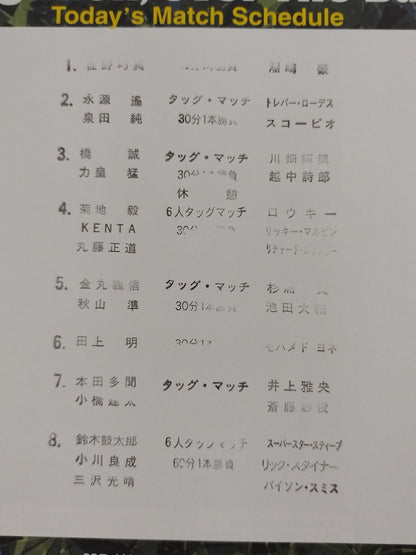 Today's Match Schedule
1.
2. 永源 遙 タッグ・マッチ トレバー・ローデス
泉田 純 30分1本勝負 スコーピオ
3. 橋 誠 タッグ・マッチ 川畑
力皇 猛 越中詩郎
休 憩
4. 菊地 毅 6人タッグマッチ ロウキー
KENTA リッキー・マルビン
丸藤正道
5. 金丸義信 タッグ・マッチ 杉浦
秋山 準 30分1本勝負 池田大輔
6. 田上 明 モハメド ヨネ
7. 本田多聞 タッグ・マッチ 井上雅央
小橋建太 斎藤彰俊
8. 鈴木鼓太郎 6人タッグマッチ スーパースター・スティーブ
小川良成 60分1本勝負 リック・スタイナー
三沢光晴 バイソン・スミス